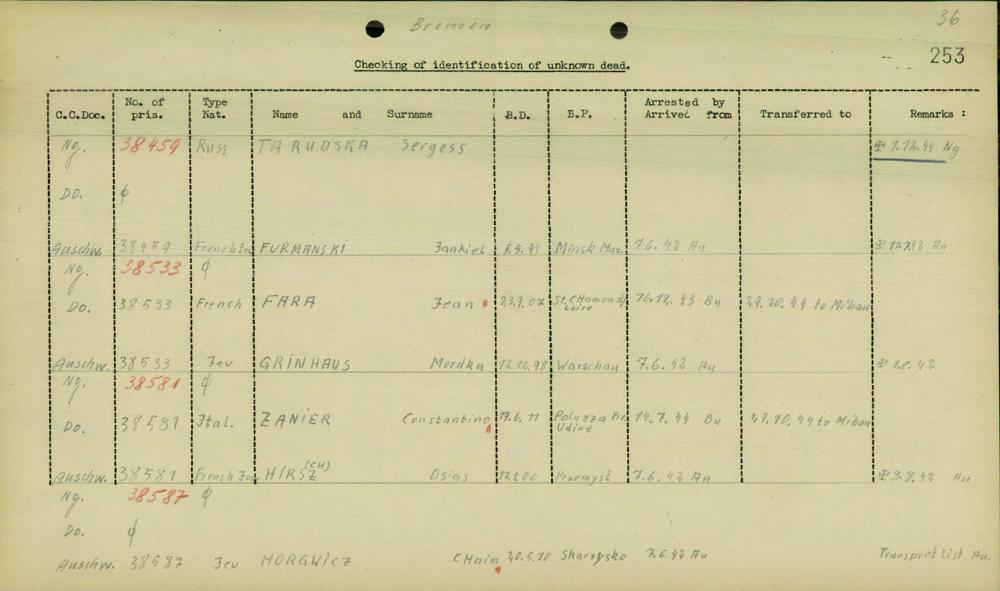 Bremen
36
253
Checking of identification of unknown dead.
C.C.Doc. No. of pris. Type Nat. Name and Surname B.D. B.P. Arrested by Arrived from Transferred to Remarks :
Ng. 38459 Russ TARUDSKA Sergess 1.12.44 Ng
Do. ϕ
Auschw. 38459 French Jew FURMANSKI Jankiel Minsk Maz. 7.6.42 Au Au
Ng. 38533 ϕ
Do. 38533 French FARA Jean 23.9.07 St. CHamond/ Loire 16.12.43 Bu 29.10.44 to Mibau
Auschw. 38533 Jew GRINHAUS Mordka 12.12.98 Warschau 7.6.42 Au 1.8.42
Ng. 38581 ϕ
Do. 38581 Ital. ZANIER Constantino 19.6.11 Paluzza Prv. Udine 14.7.44 Bu 29.10.44 to Mibau
Auschw. 38581 French Jew HIRSZ (CH) Osias Przemysl 7.6.42 Au 3.8.42 Au
Ng. 38587 ϕ
Do. ϕ
Auschw. 38587 Jew HORGWICZ CHaim 20.5.20 Skarzysko 7.6.42 Au Transport List Au.